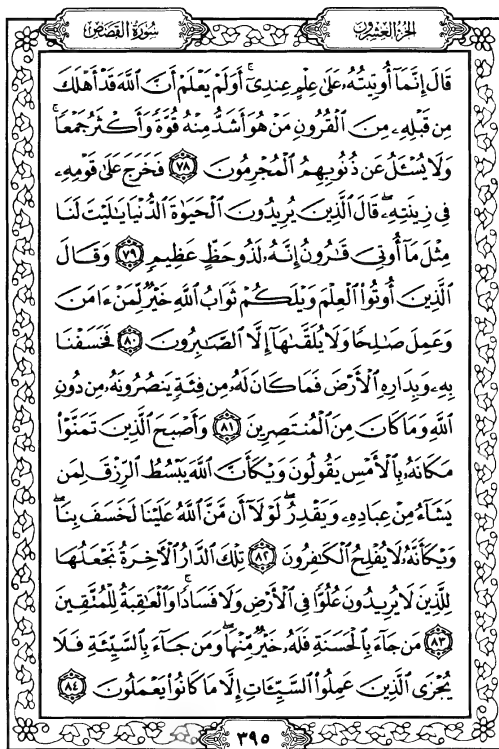 سُورَةُ القَصَصِ
الجُزءُ العِشرُونَ
قَالَ إِنَّمَآ أُوتِيتُهُۥ عَلَىٰ عِلْمٍ عِندِىٓ ۚ أَوَلَمْ يَعْلَمْ أَنَّ ٱللَّهَ قَدْ أَهْلَكَ
مِن قَبْلِهِۦ مِنَ ٱلْقُرُونِ مَنْ هُوَ أَشَدُّ مِنْهُ قُوَّةً وَأَكْثَرُ جَمْعًا ۚ
وَلَا يُسْـَٔلُ عَن ذُنُوبِهِمُ ٱلْمُجْرِمُونَ ٧٨ فَخَرَجَ عَلَىٰ قَوْمِهِۦ
فِى زِينَتِهِۦ ۖ قَالَ ٱلَّذِينَ يُرِيدُونَ ٱلْحَيَوٰةَ ٱلدُّنْيَا يَـٰلَيْتَ لَنَا
مِثْلَ مَآ أُوتِىَ قَـٰرُونُ إِنَّهُۥ لَذُو حَظٍّ عَظِيمٍ ٧٩ وَقَالَ
ٱلَّذِينَ أُوتُوا۟ ٱلْعِلْمَ وَيْلَكُمْ ثَوَابُ ٱللَّهِ خَيْرٌ لِّمَنْ ءَامَنَ
وَعَمِلَ صَـٰلِحًا وَلَا يُلَقَّىٰهَآ إِلَّا ٱلصَّـٰبِرُونَ ٨٠ فَخَسَفْنَا
بِهِۦ وَبِدَارِهِ ٱلْأَرْضَ فَمَا كَانَ لَهُۥ مِن فِئَةٍ يَنصُرُونَهُۥ مِن دُونِ
ٱللَّهِ وَمَا كَانَ مِنَ ٱلْمُنتَصِرِينَ ٨١ وَأَصْبَحَ ٱلَّذِينَ تَمَنَّوْا۟
مَكَانَهُۥ بِٱلْأَمْسِ يَقُولُونَ وَيْكَأَنَّ ٱللَّهَ يَبْسُطُ ٱلرِّزْقَ لِمَن
يَشَآءُ مِنْ عِبَادِهِۦ وَيَقْدِرُ ۖ لَوْلَآ أَن مَّنَّ ٱللَّهُ عَلَيْنَا لَخَسَفَ بِنَا ۖ
وَيْكَأَنَّهُۥ لَا يُفْلِحُ ٱلْكَـٰفِرُونَ ٨٢ تِلْكَ ٱلدَّارُ ٱلْـَٔاخِرَةُ نَجْعَلُهَا
لِلَّذِينَ لَا يُرِيدُونَ عُلُوًّا فِى ٱلْأَرْضِ وَلَا فَسَادًا ۚ وَٱلْعَـٰقِبَةُ لِلْمُتَّقِينَ
٨٣ مَن جَآءَ بِٱلْحَسَنَةِ فَلَهُۥ خَيْرٌ مِّنْهَا ۖ وَمَن جَآءَ بِٱلسَّيِّئَةِ فَلَا
يُجْزَى ٱلَّذِينَ عَمِلُوا۟ ٱلسَّيِّـَٔاتِ إِلَّا مَا كَانُوا۟ يَعْمَلُونَ ٨٤
٣٩٥